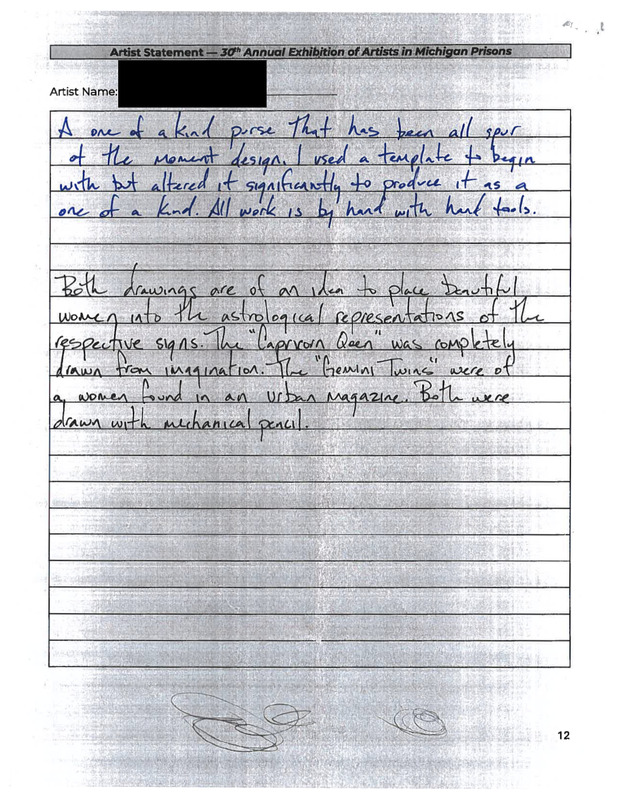 Artist Statement — 30th Annual Exhibition of Artists in Michigan Prisons
Artist Name:
A one of a kind purse that has been all spur
of the moment design. I used a template to begin
with but altered it significantly to produce it as a
one of a kind. All work is by hand with hand tools.
Both drawings are of an idea to place beautiful
women into the astrological representations of the
respective signs. The "Caprvorn Qeen" was completely
drawn from imagination. The "Gemini Twins" were of
a women found in an urban magazine. Both were
drawn with mechanical pencil.
12